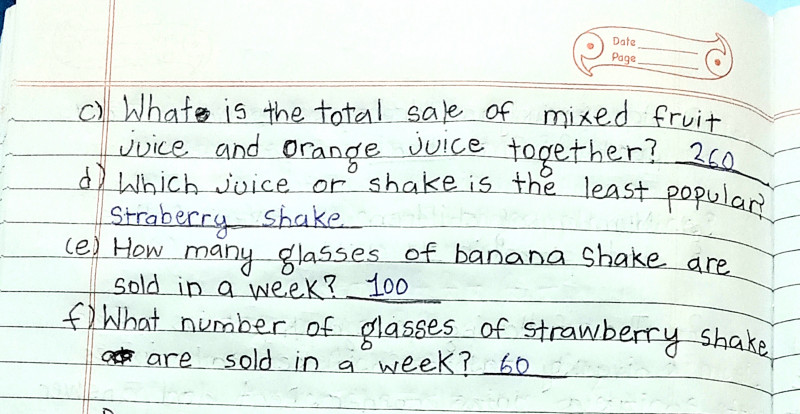 Date
Page
c) What is the total sale of mixed fruit
juice and orange juice together? 260
d) Which juice or shake is the least popular?
Straberry shake
(e) How many glasses of banana shake are
sold in a week? 100
f) What number of glasses of strawberry shake
are sold in a week? 60